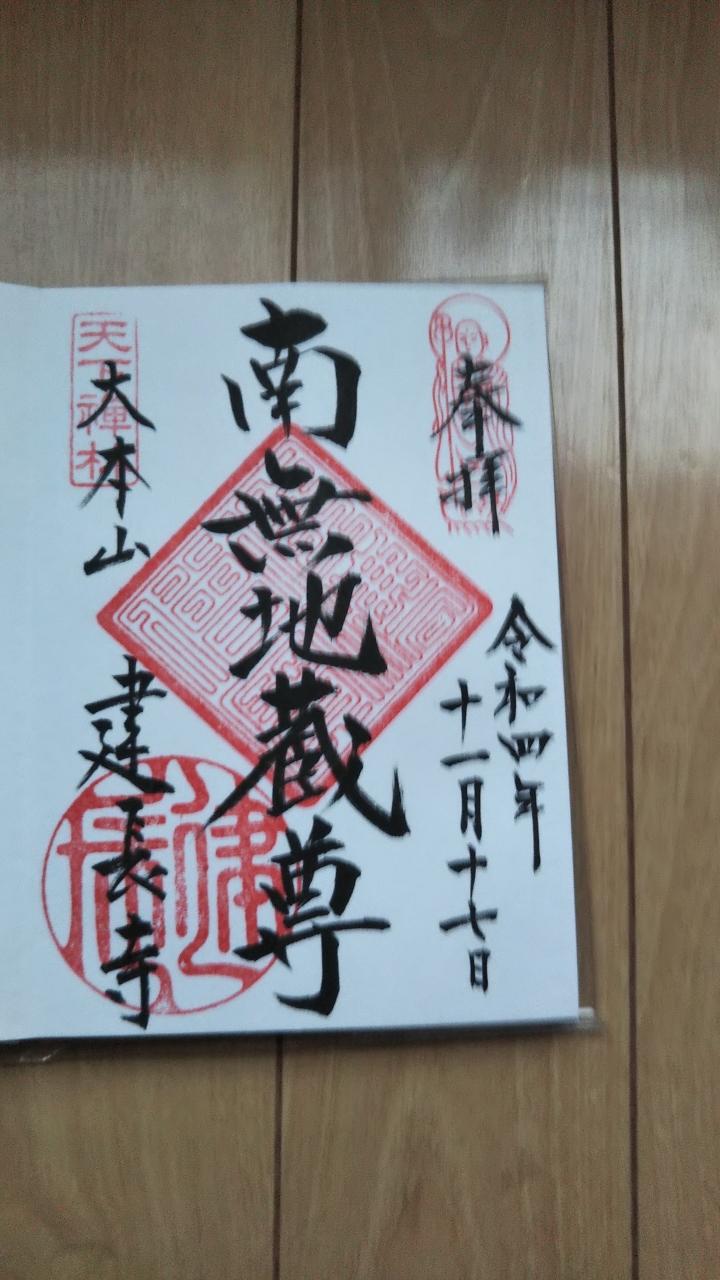 奉拝
令和四年
十一月十七日
南無地蔵尊
天下禅林
大本山
建長寺
建長